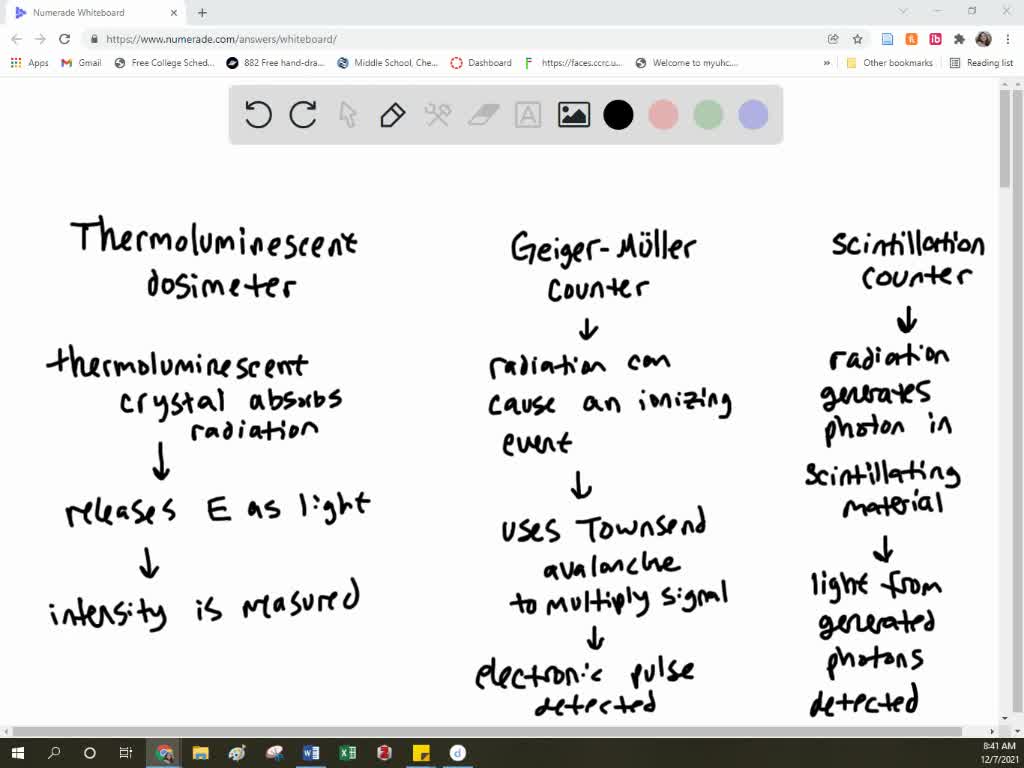 Numerade Whiteboard
https://www.numerade.com/answers/whiteboard/
Apps
Gmail
Free College Sched...
882 Free hand-dra...
Middle School, Che...
Dashboard
https://faces.ccrc.u...
Welcome to myuhc....
»
Other bookmarks
Reading list
A
Thermoluminescent
dosimeter
thermoluminescent
crystal absorbs
radiation
releases E as light
intensity is measured
Geiger-Müller
counter
radiation can
cause an ionizing
event
uses Townsend
avalanche
to multiply signal
electronic pulse
detected
Scintillation
counter
radiation
generates
photon in
scintillating
material
light from
generated
photons
detected
8:41 AM
12/7/2021